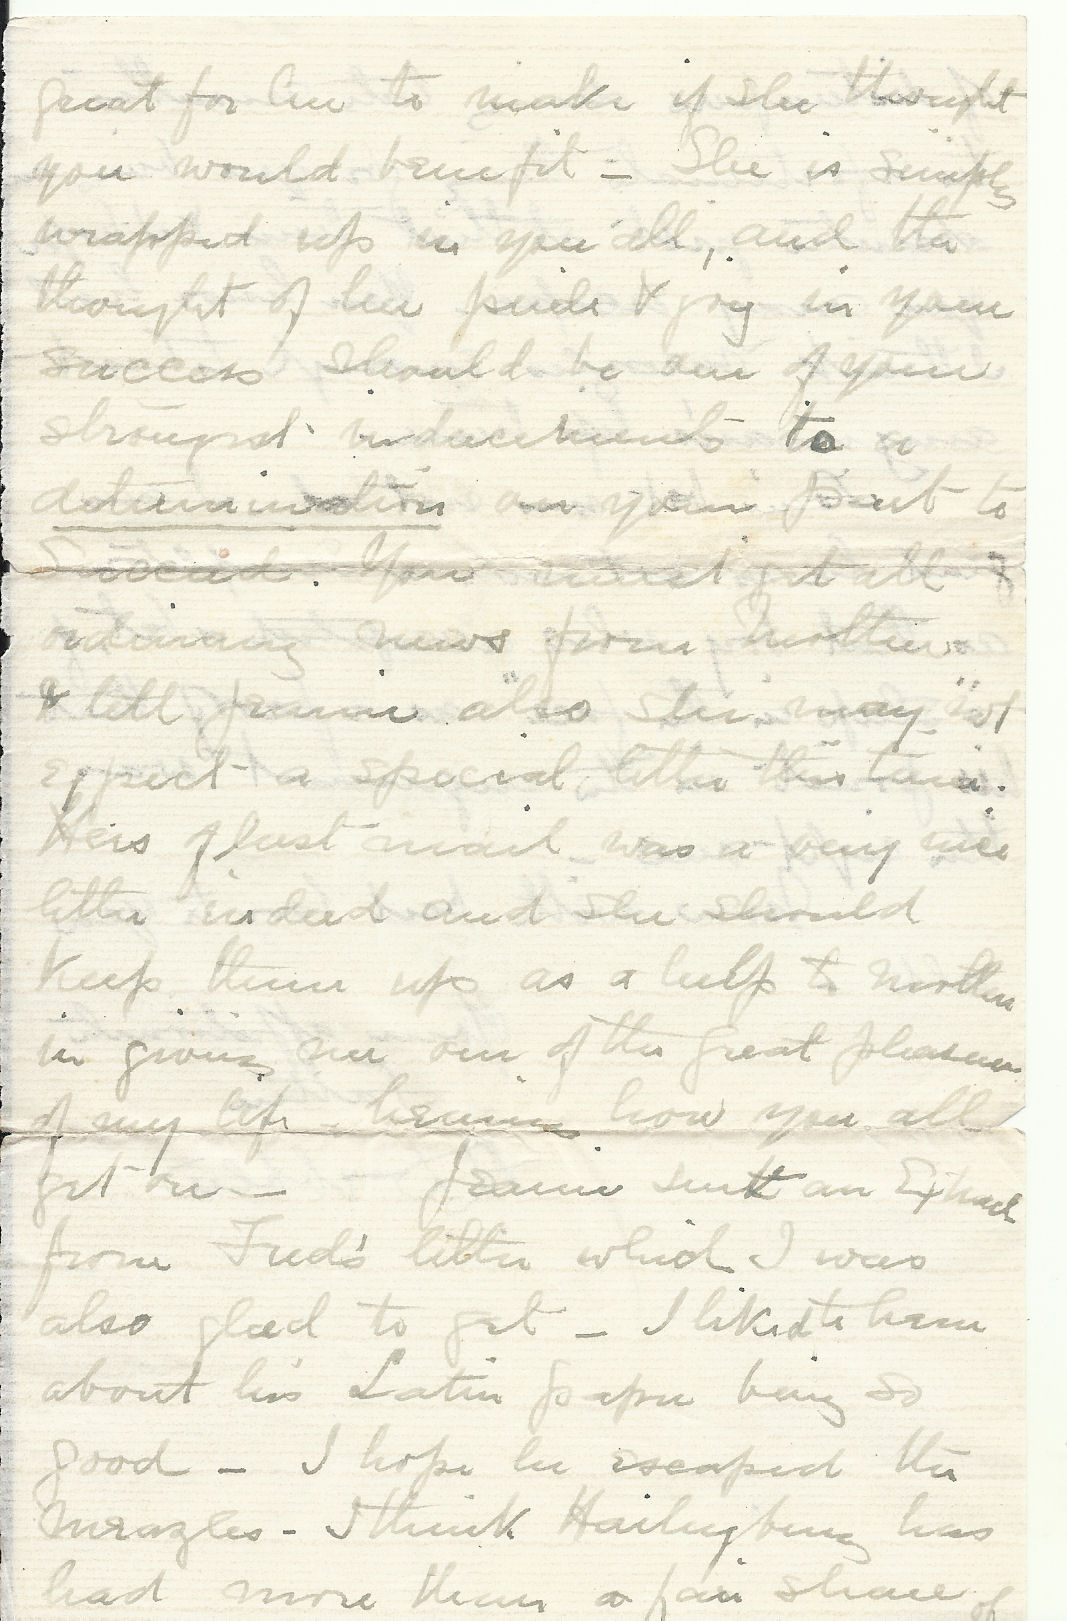 great for her to make if she thought
you would benefit - She is simply
wrapped up in you all, and the
thought of her pride & joy in your
success should be one of your
strongest inducements to a
determination on your part to
succeed. You must get all
ordinary news from Mother
& tell Jeanie also she may not
expect a special letter this time.
Hers of last mail was a very nice
letter indeed and she should
keep them up as a help to mother
in giving me one of the great pleasures
of my life - hearing how you all
get on - Jeanie sent an Extract
from Fred's letter which I was
also glad to get - I liked to hear
about his Latin paper being so
good - I hope he escaped the
Measles - I think Haileybury has
had more than a fair share of